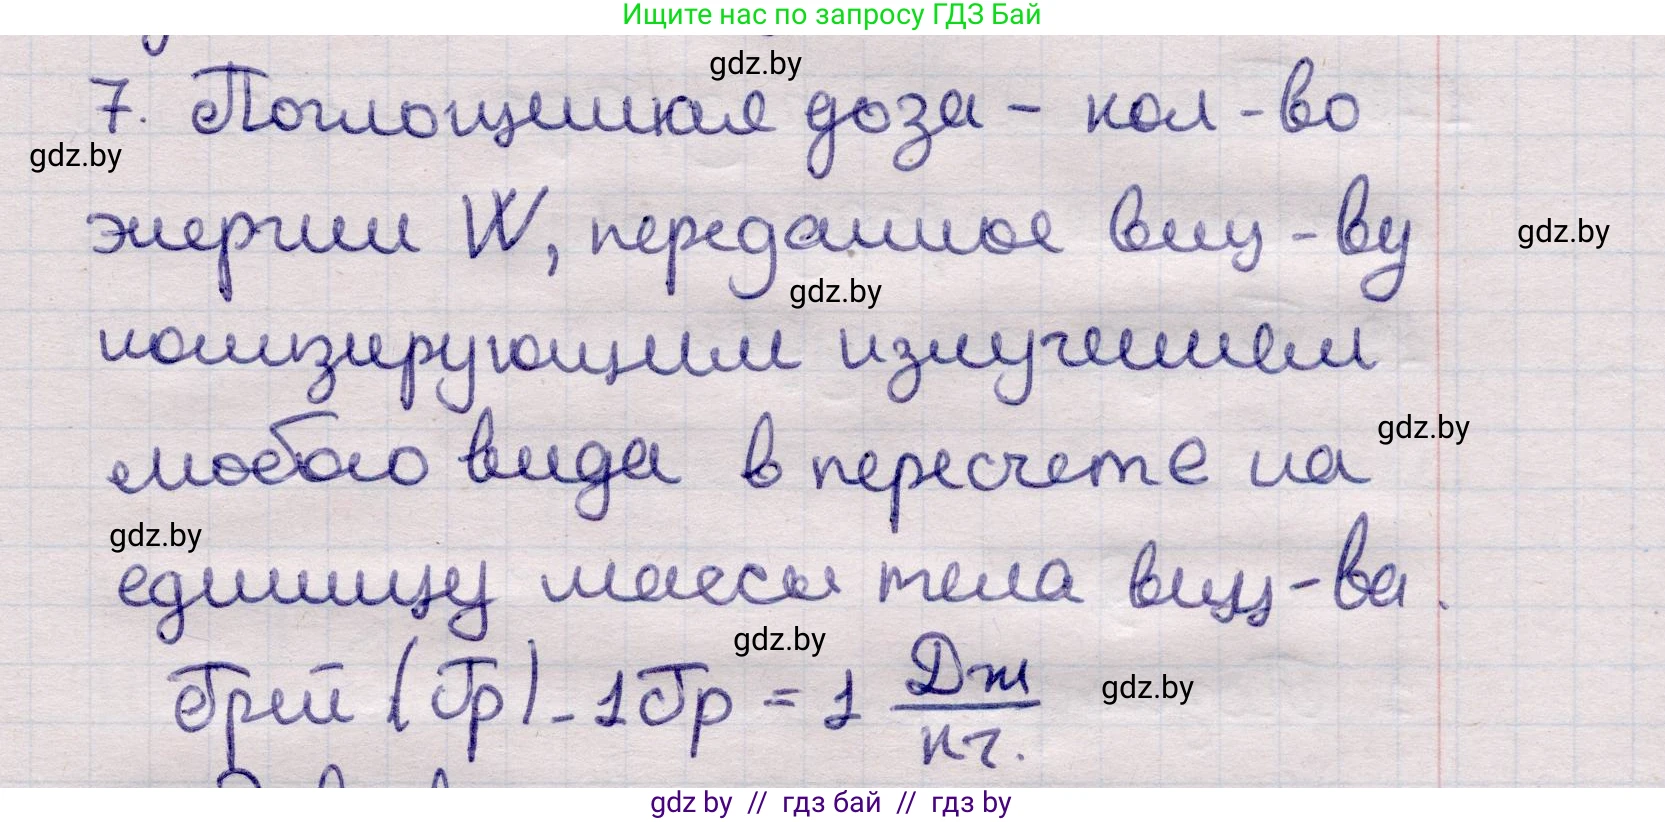 Ищите нас по запросу ГДЗ Бай
gdz.by
7. Поглощенная доза - кол-во
gdz.by
энергии W, переданное вещ-ву
gdz.by
gdz.by
ионизирующим излучением
gdz.by
любого вида в пересчете на
gdz.by
единицу массы тела вещ-ва.
gdz.by
Грей (Гр) - 1Гр = 1 Дж/кг.
gdz.by
gdz by // гдз бай // гдз by